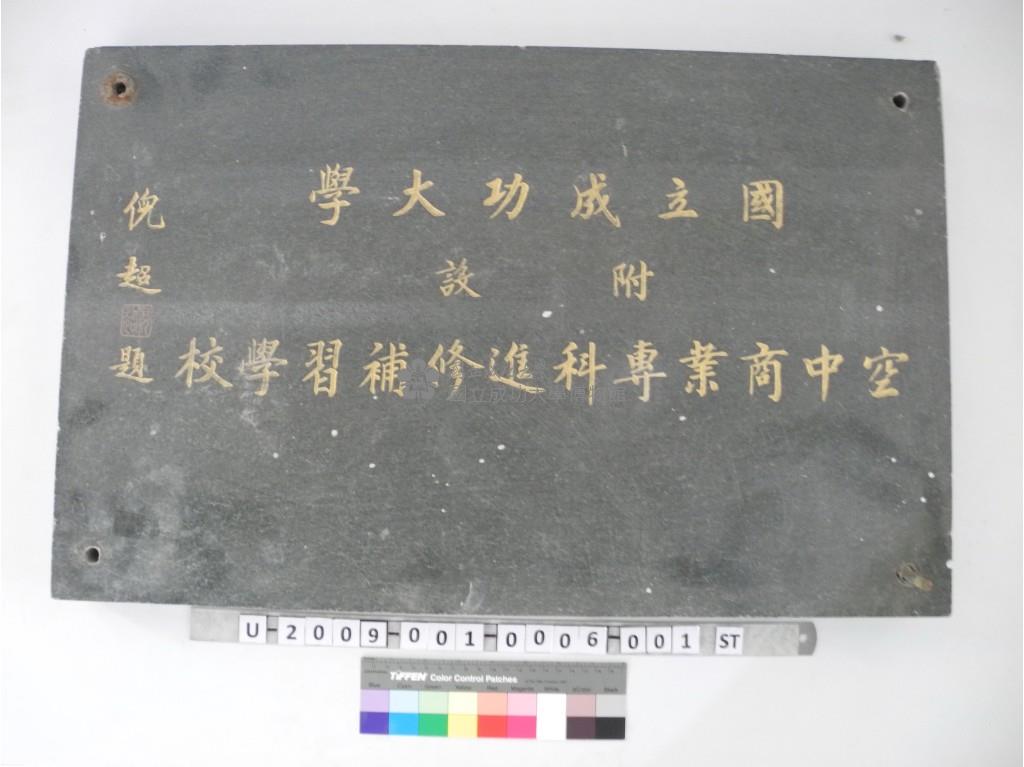 國立成功大學
附設
空中商業專科進修補習學校
倪超題
國立成功大學博物館
U-2009-001-0006-001 ST
TIFFEN Color Control Patches
Blue Cyan Green Yellow Red Magenta White 3/Color Black